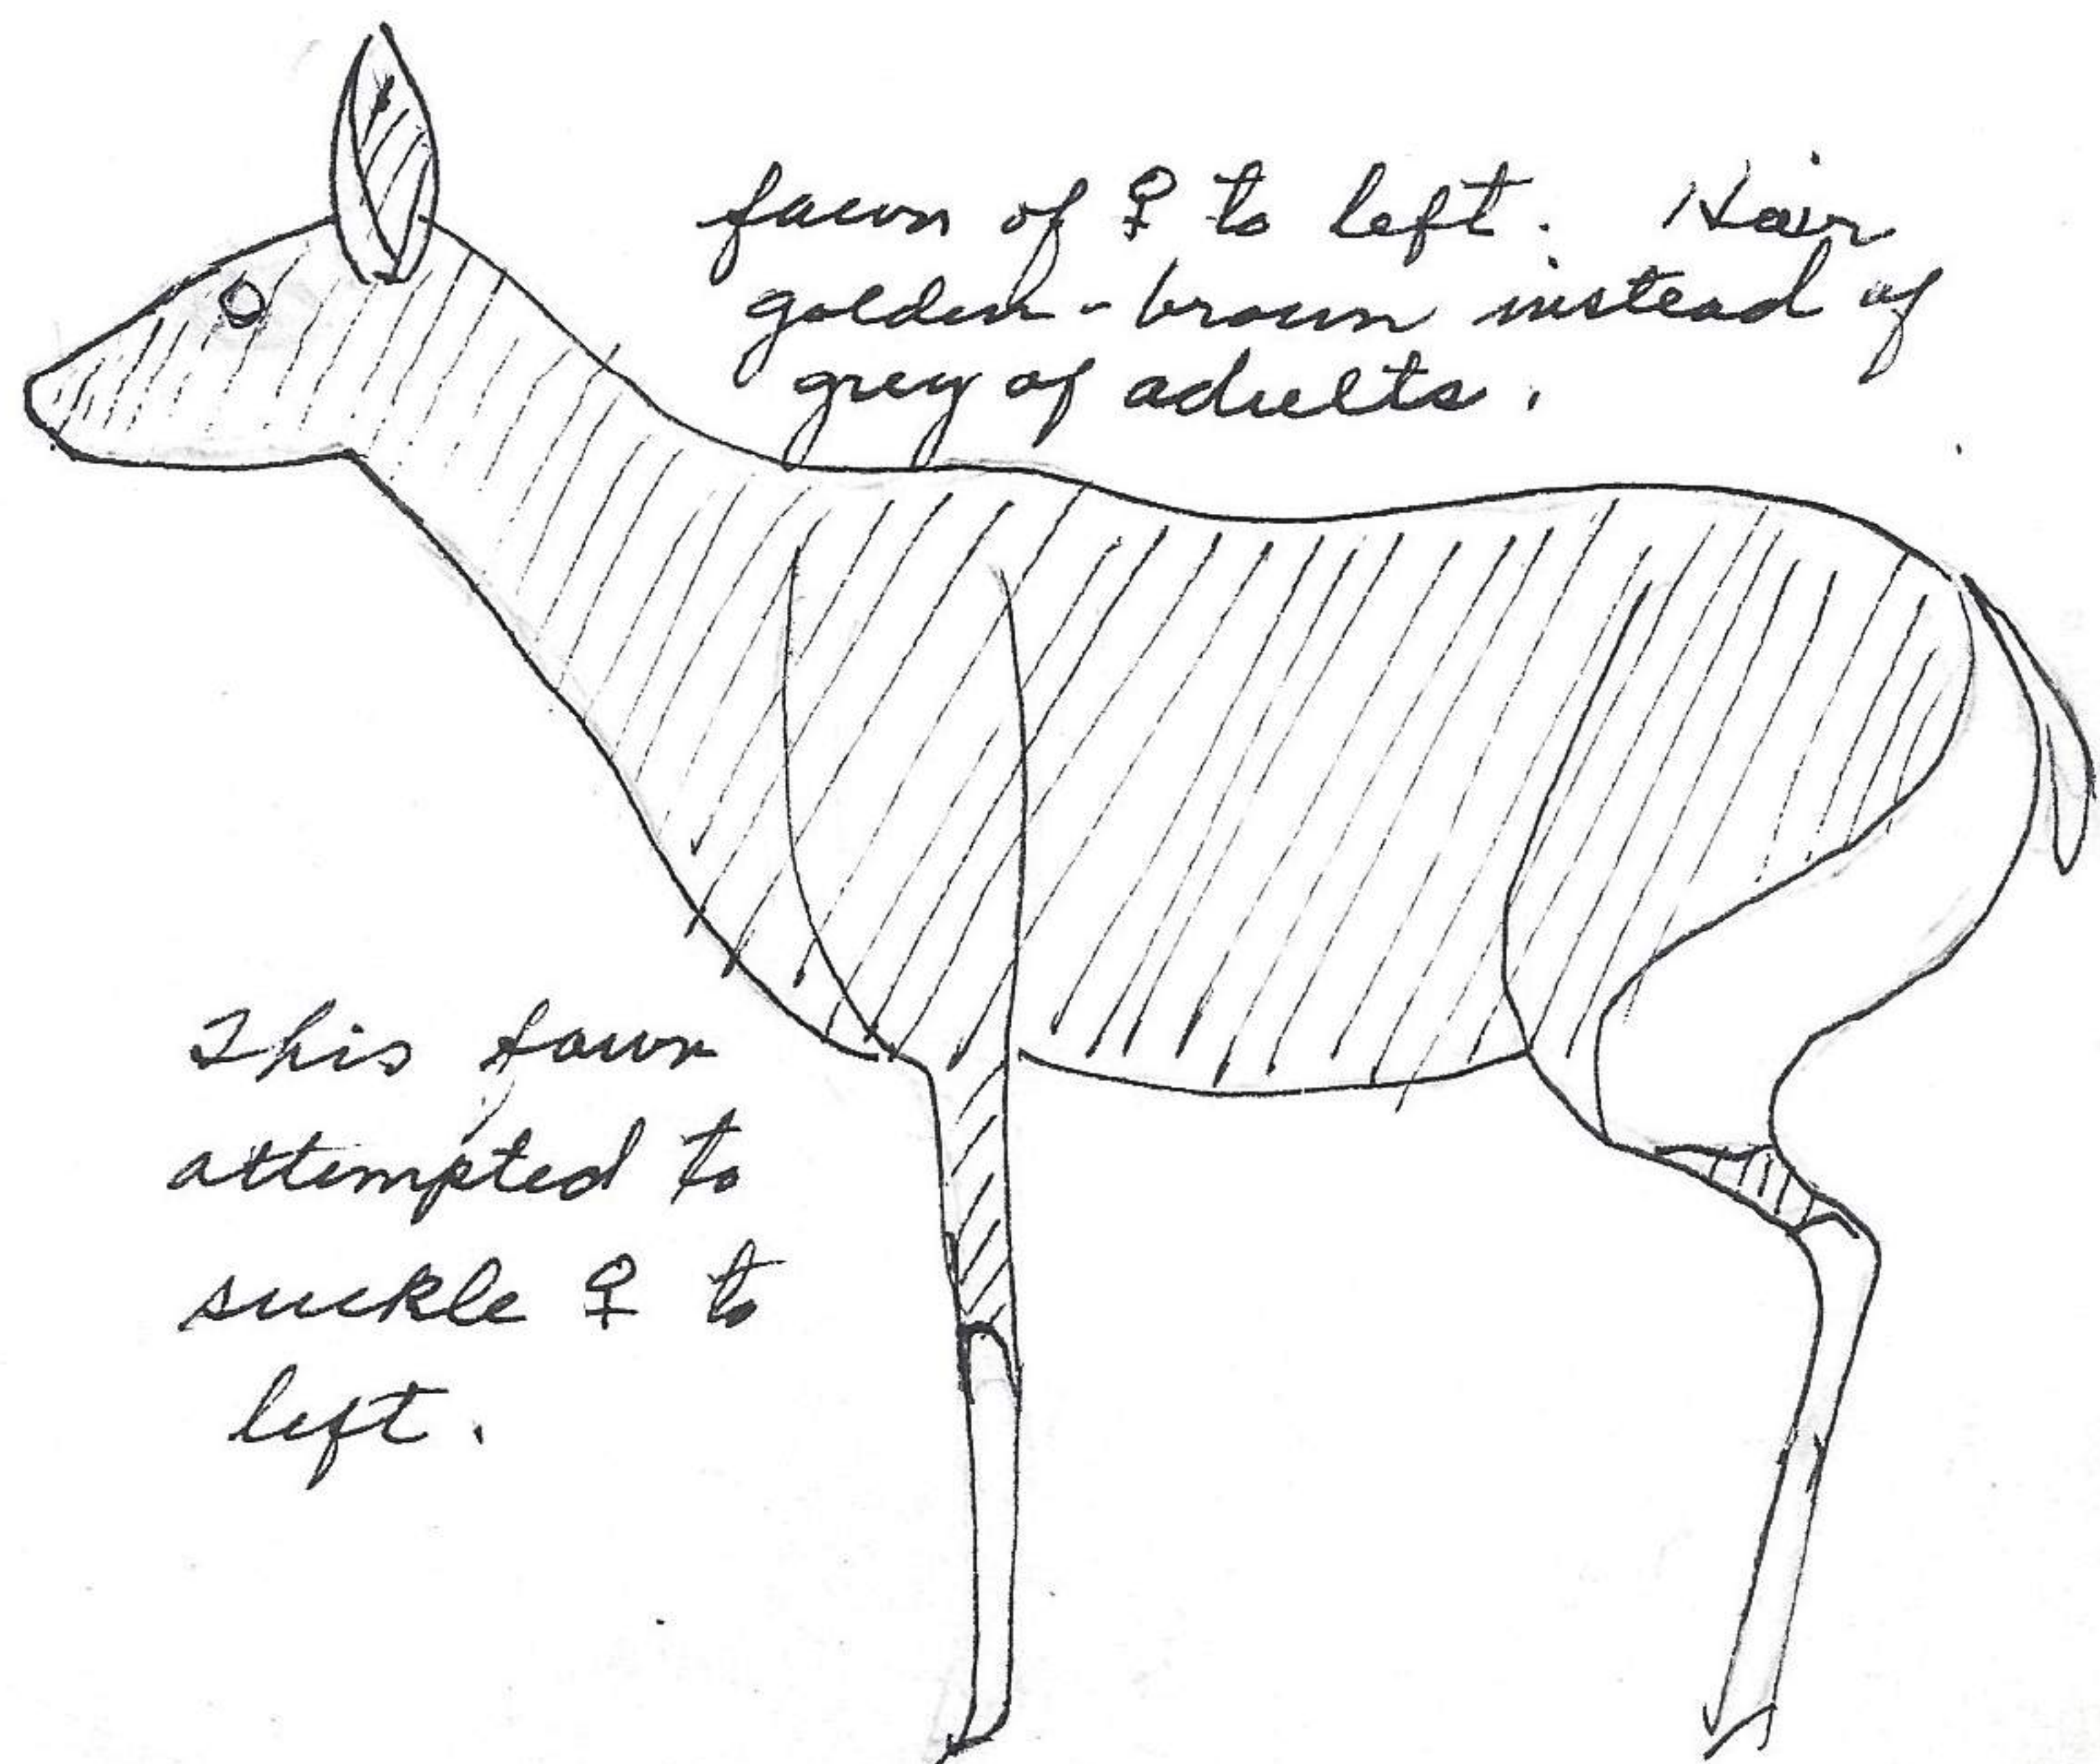 fawn of ♀ to left. Hair
golden-brown instead of
grey of adults.
This fawn
attempted to
suckle ♀ to
left.